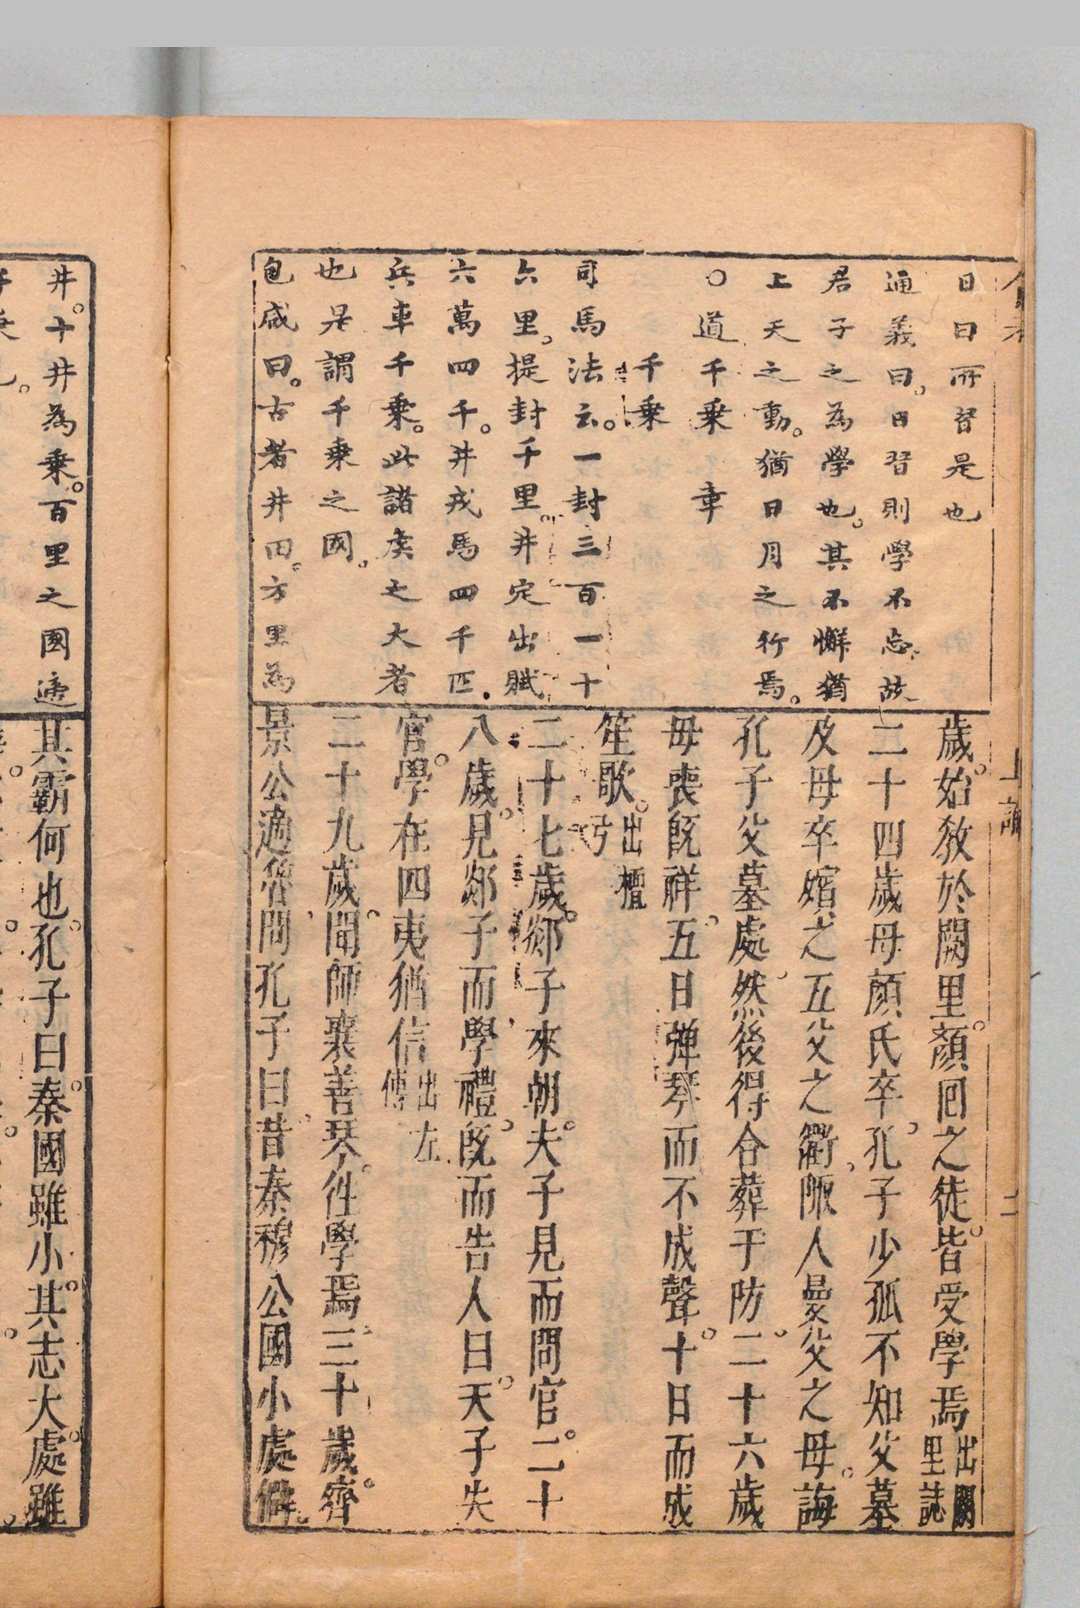 日曰所習是也
通義曰日習則學不忘故
君子之為學也其不懈猶
上天之動猶日月之行焉
○道千乘章
千乘
司馬法云一封三百一十
六里提封千里井定出賦
六萬四千井戎馬四千匹
兵車千乘此諸矦之大者
也是謂千乘之國
包咸曰古者井田方里為
井十井為乘百里之國適
歲始敎於闕里顏回之徒皆受學焉出闕里誌
二十四歲母顏氏卒孔子少孤不知父墓
及母卒殯之五父之衢陬人曼父之母誨
孔子父墓處然後得合葬于防二十六歲
母喪旣祥五日彈琴而不成聲十日而成
笙歌出檀弓
二十七歲郯子來朝夫子見而問官二十
八歲見郯子而學禮旣而告人曰天子失
官學在四夷猶信出左傳
二十九歲聞師襄善琴徃學焉三十歲齊
景公適魯問孔子曰昔秦穆公國小處僻
其霸何也孔子曰秦國雖小其志大處雖